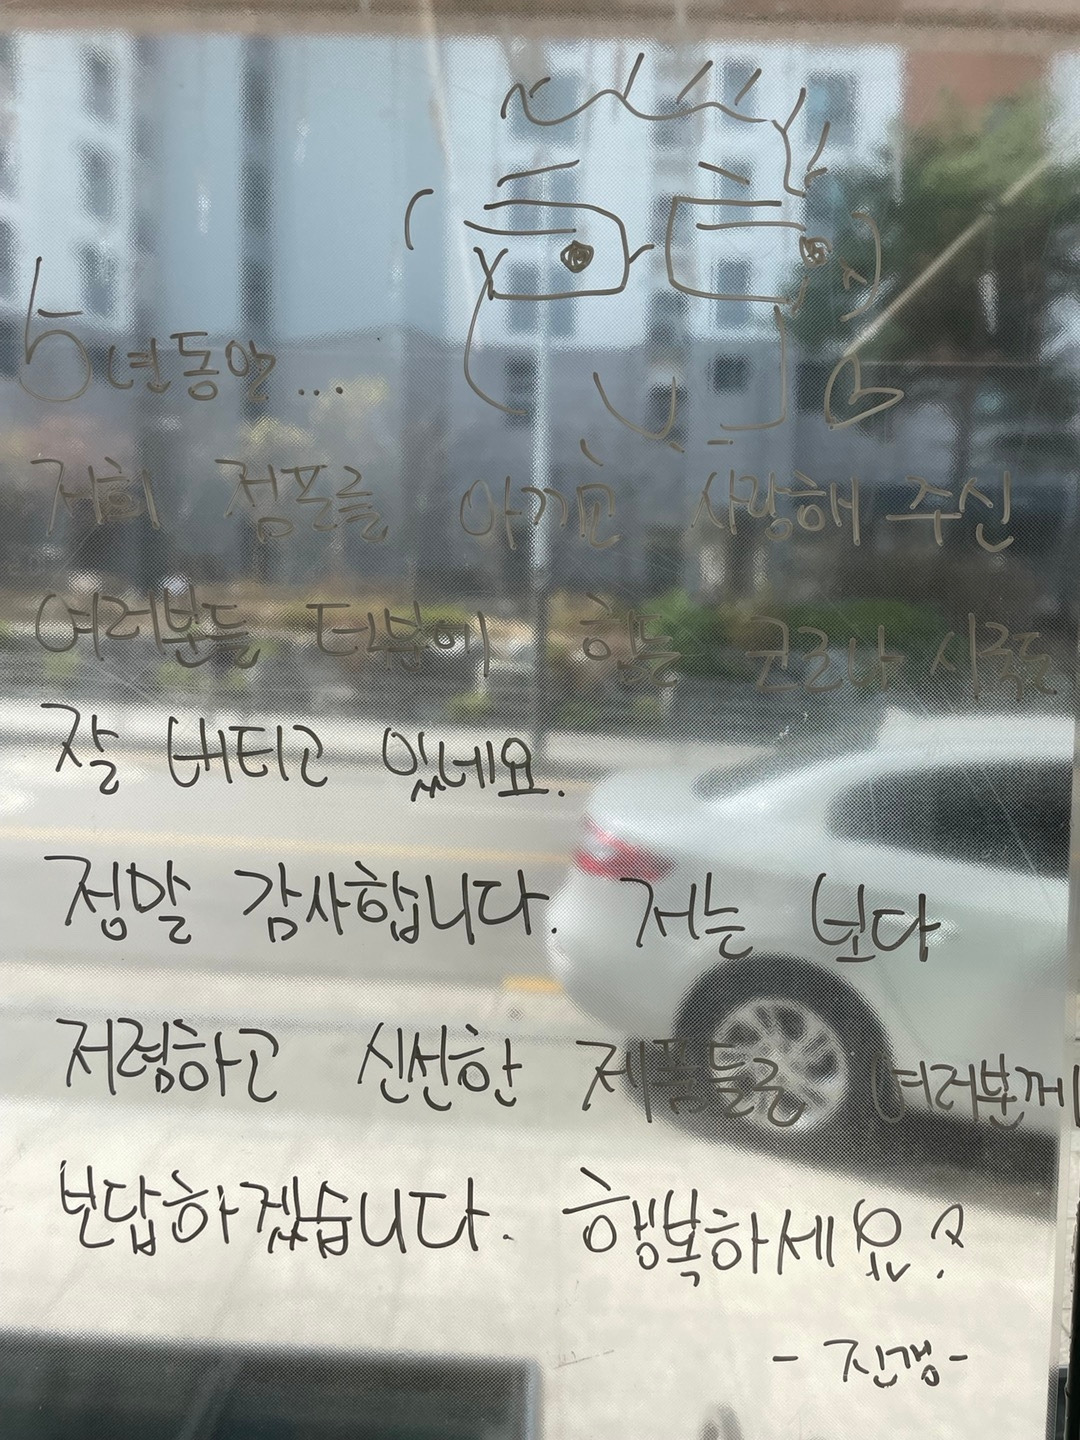 5년동안...
저희 점포를 아끼고 사랑해 주신
여러분들 터분에 힘든 코로나 시국도
잘 버티고 있네요.
정말 감사합니다. 저는 보다
저렴하고 신선한 제품들로 여러분께
보답하겠습니다. 행복하세요
- 진갱 -